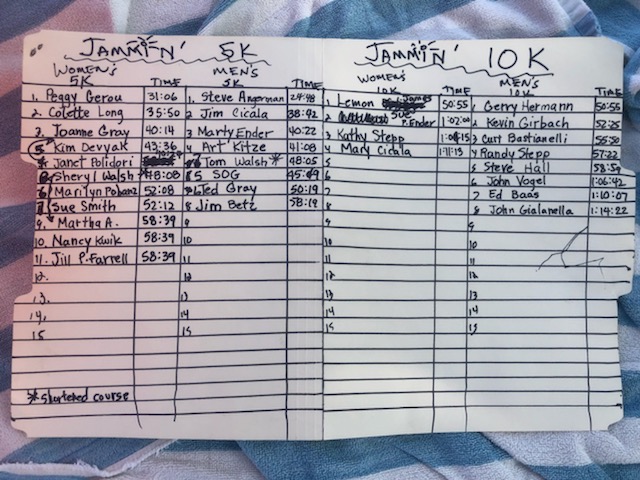 JAMMIN' 5K
WOMEN'S 5K TIME MEN'S 5K TIME
1. Peggy Gerou 31:06 1. Steve Angerman 24:48
2. Colette Long 35:50 2 Jim Cicala 38:42
3. Joanne Gray 40:14 3 Marty Ender 40:22
5 Kim Devyak 43:36 4 Art Kitze 41:08
* Janet Polidori Tom Walsh* 48:05
Sheryl Walsh *48:08 5 SOG
6 Marilyn 52:08 6 Ted Gray 50:19
7 Sue Smith 52:12 8 Jim Betz 58:19
9. Martha A. 58:39 9
10. Nancy Kwik 58:39 10
11. Jill P. Farrell 58:39 11
12. 12
13. 13
14. 14
15 15
* shortened course
JAMMIN' 10K
WOMEN'S 10K TIME MEN'S 10K TIME
1 Lemon James 50:55 1 Gerry Hermann 50:55
2 Sue P. Ender 1:02:00 2 Kevin Girbach 52:25
3 Kathy Stepp 3 Curt Bastianelli 55:50
4 Mary Cicala 1:11:13 4 Randy Stepp 57:22
5 5 Steve Hall
6 6 John Vogel 1:06:42
7 7 Ed Baas 1:10:07
8 8 John Gialanella 1:14:22
9 9
10 10
11 11
12 12
13 13
14 14
15 15